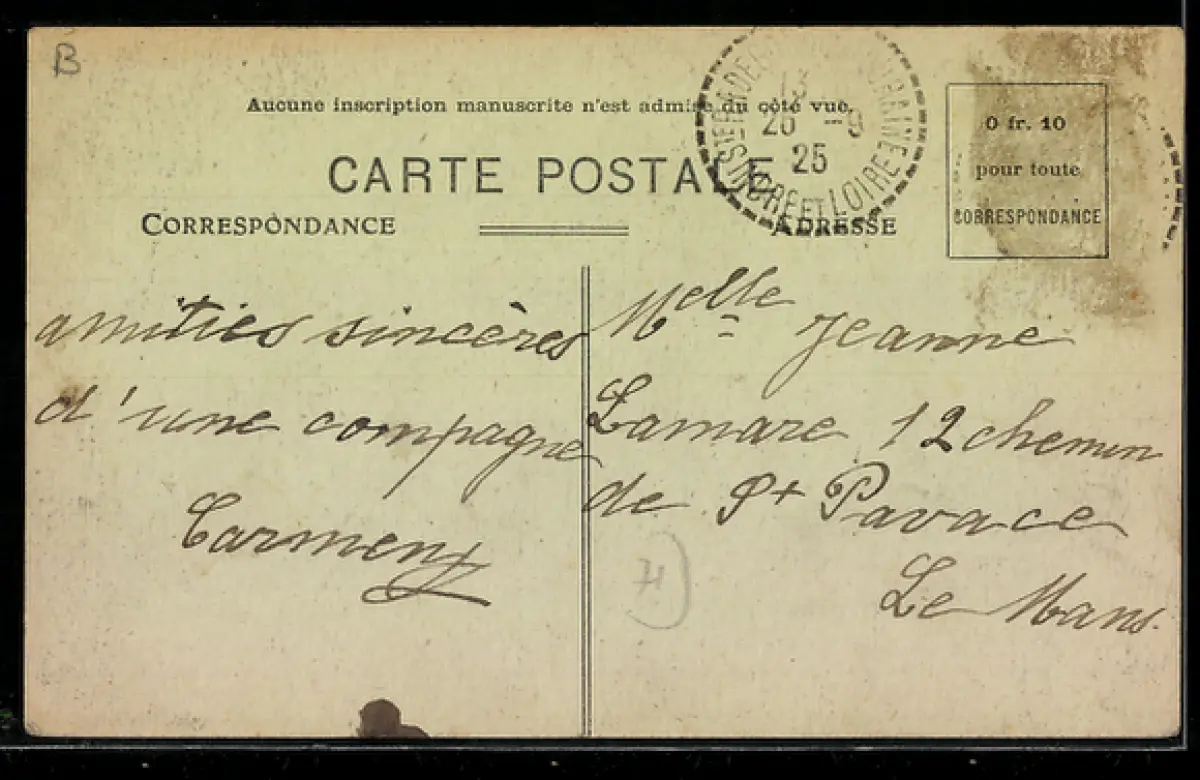 B
Aucune inscription manuscrite n'est admise du côté vue.
CARTE POSTALE
CORRESPONDANCE
ADRESSE
0 fr. 10
pour toute
CORRESPONDANCE
13
26 - 9
25
INDRE ET LOIRE
amitiés sincères
d'une compagne
Carmen
Melle Jeanne
Lamare 12 chemin
de St Pavace
Le Mans